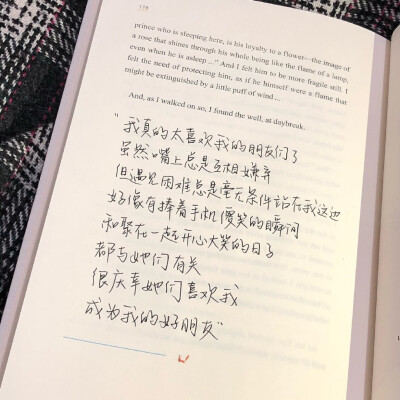 118
prince who is sleeping here, is his loyalty to a flower—the image of
a rose that shines through his whole being like the flame of a lamp,
even when he is asleep ..." And I felt him to be more fragile still. I
felt the need of protecting him, as if he himself were a flame that
might be extinguished by a little puff of wind ...
And, as I walked on so, I found the well, at daybreak.
"我真的太喜欢我的朋友们了
虽然嘴上总是互相嫌弃
但遇见困难总是毫无条件站在我这边
好像每捧着手机傻笑的瞬间
和聚在一起开心大笑的日子
都与她们有关
很庆幸她们喜欢我
成为我的好朋友"